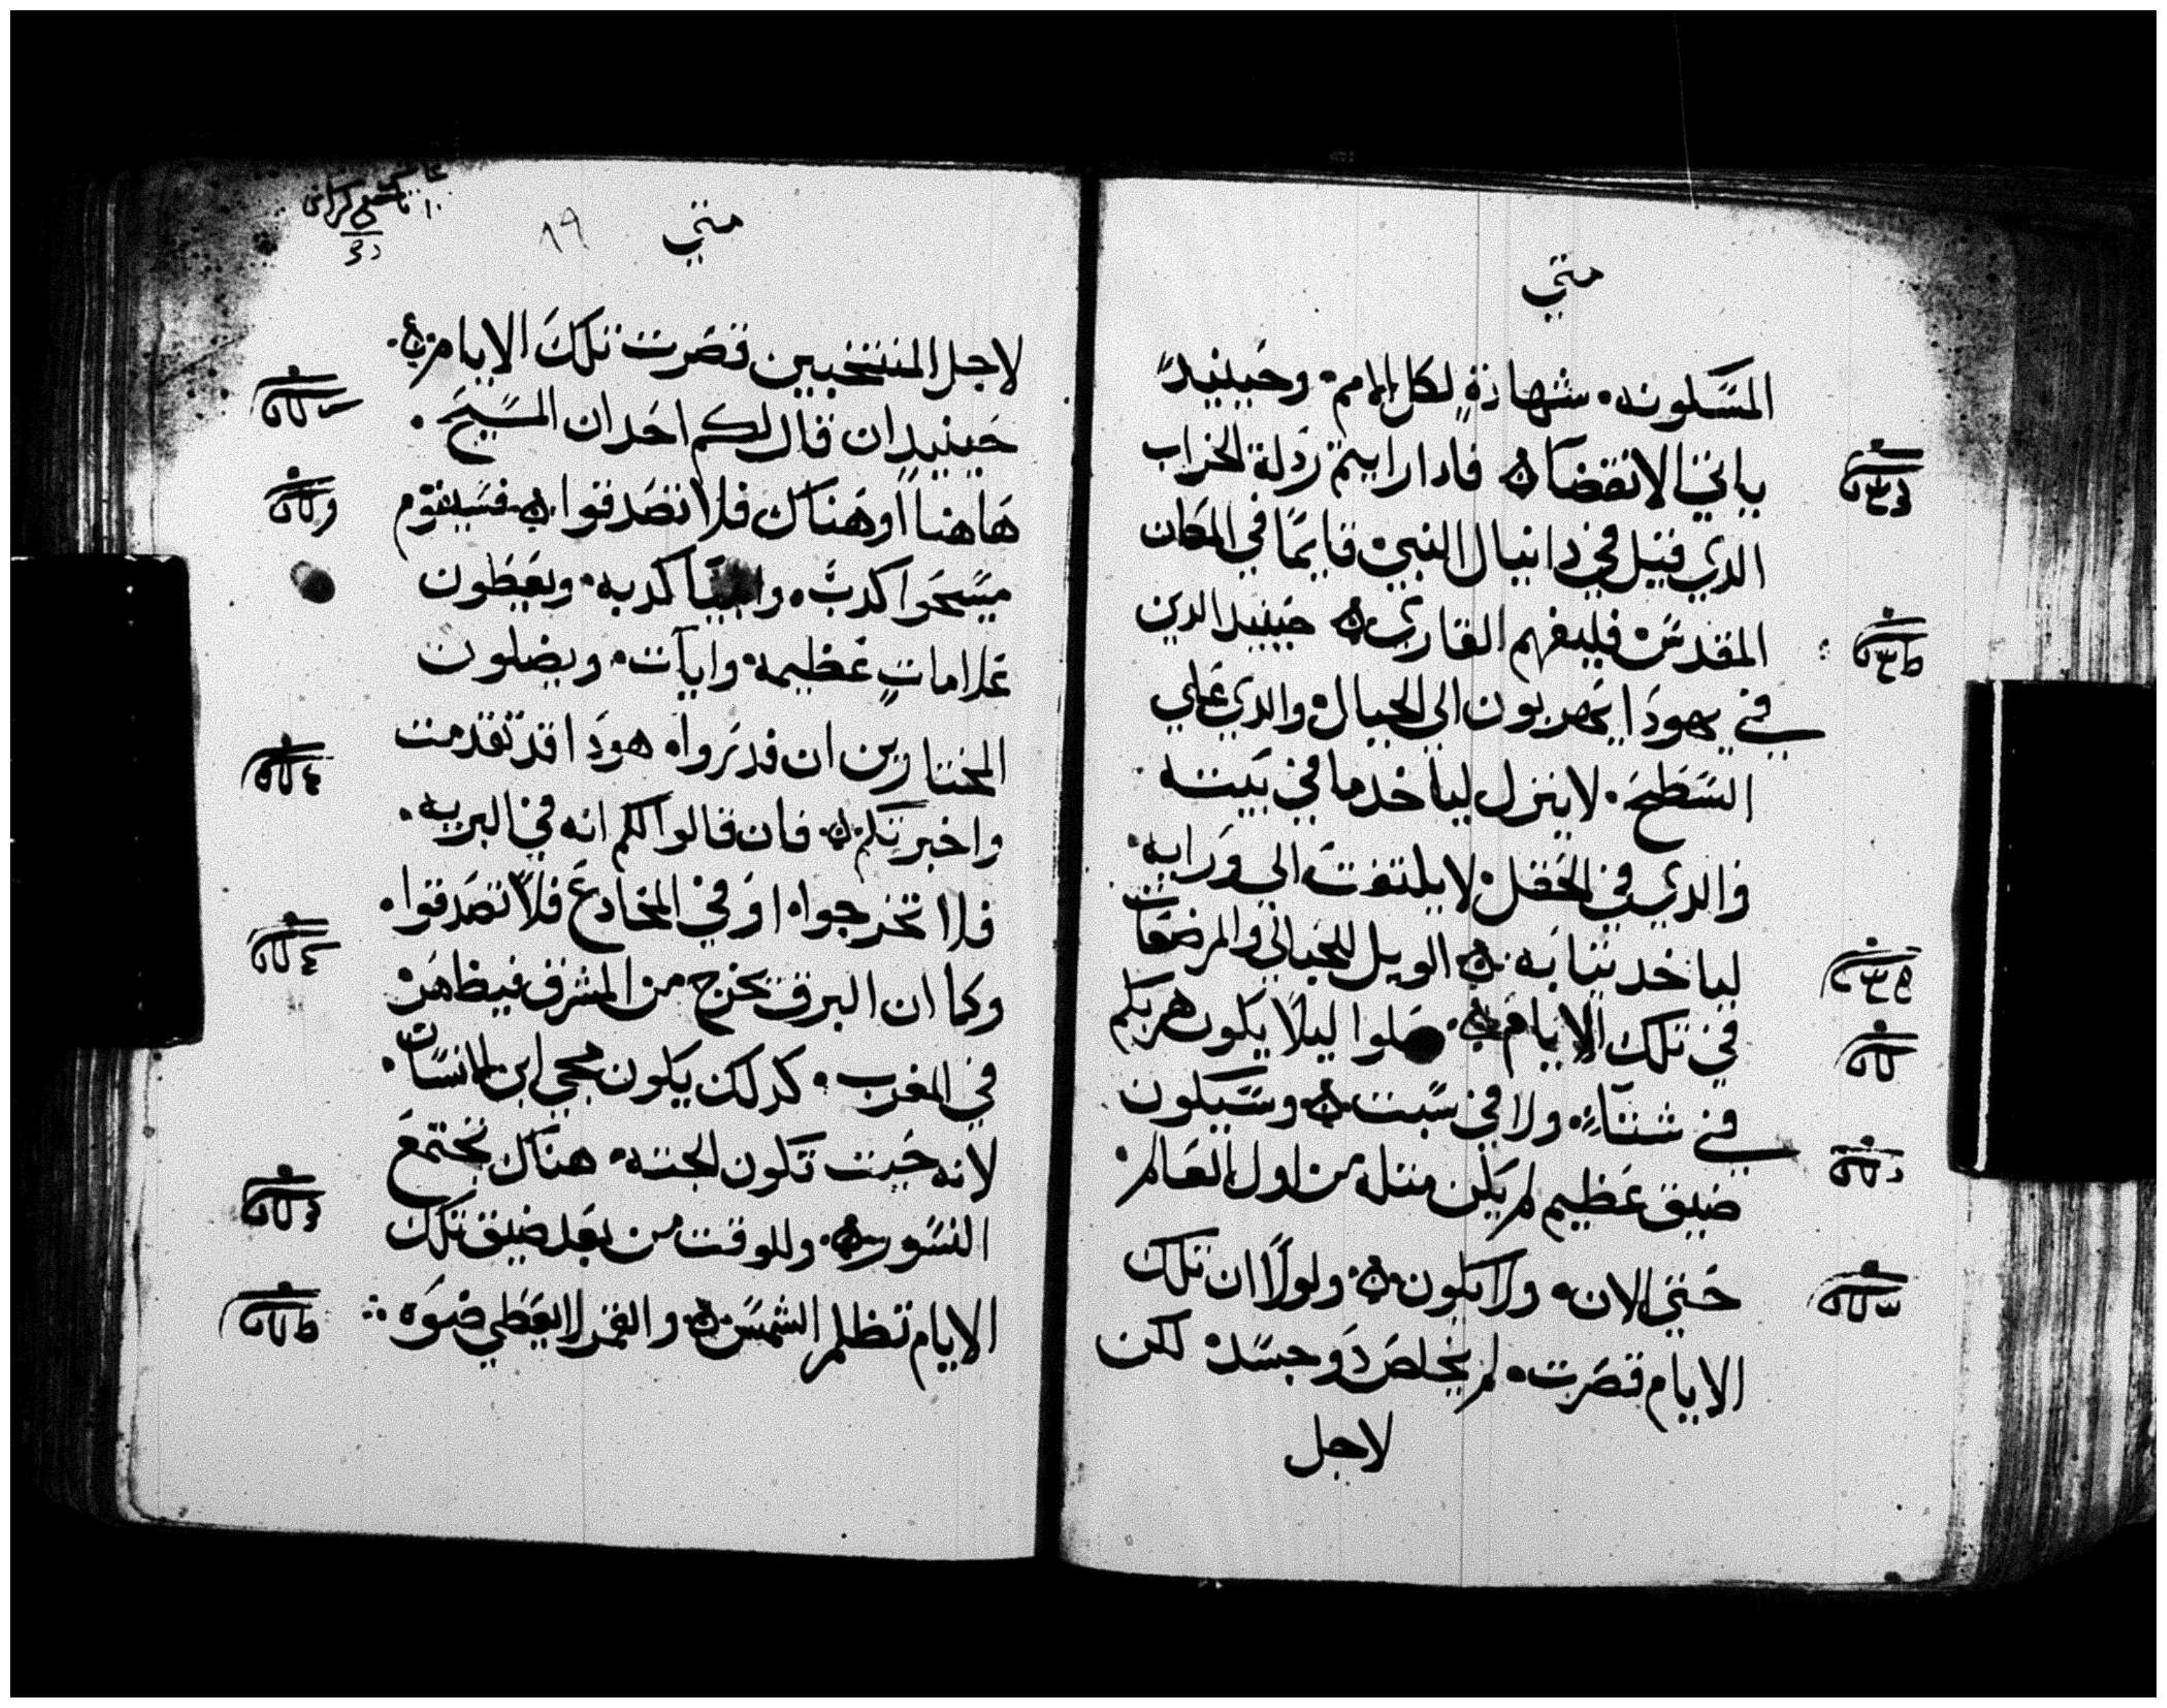 متي
المسَكونه۰ شهادةٍ لكل الامم۰ وحَينيدً
ياتي الانقضآ۞ فادا رايتم رَدلة الخراب
الدي قيل في دانيال النبي۰ قايمًا في المكان
المقدسَ۰ فليفهم القاري۞ حينيد الدين
في يهودَا يَهربون الي الجبال۰ والدي عَلي
السَطحَ۰ لا ينزل لياخد ما في بَيته
والدي في الحَقل۰ لا يلتفت الي وَرايه۰
لياخد تيابَه۞ الويل للحَبالي والمرضعَات
في تلك الايام۞ صَلوا ليلًا يكون هربكم
في شتآءٍ۰ ولا في سَبت۞ وسَيكون
ضيق عَظيم لم يَكن متله من اول العَالم۰
حَتي الان۰ ولا يكون۞ ولولَا ان تلك
الايام قصَرت۰ لم يخلصَ دَو جسَد۰ لكن
لاجل
متي
١٩
لاجل المنتخبين قصَرت تلكَ الايام۞
حَينيدٍ ان قال لكم احَد ان المسَيحَ۰
هَاهنا او هَناك فلا تصَدقوا۞ فسَيقوم
مسَحَوا كدبَه۰ وانبيَا كدبه۰ ويعَطون
عَلاماتٍ عَظيمه۰ وايآت۰ ويضلون
المختارين ان قدرَوا۰ هودَا قد تقدمت
واخبرتكم۞ فان قالوا لكم انه في البريه۰
فلا تخرجوا۰ اوَ في المخادعَ فلا تصَدقوا۰
وكما ان البرق يخرج من المشرق فيظاهَر۰
في المغرب۰ كدلك يكون مجي ابن الانسَان۰
لانه حَيت تكون الجته۰ هناك تجتمعَ
النسَور۞ وللوقت من بعَد ضيق تلك
الايام تظلم الشمسَ۞ والقمر لا يعَطي ضوَه۰